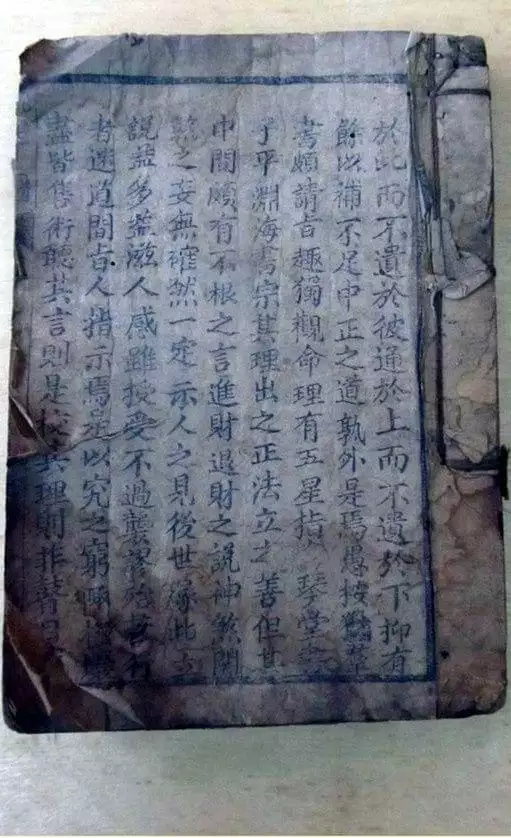 於此而不遺於彼通於上而不遺於下抑有
餘以補不足中正之道孰外是焉愚按
書頗請旨趣獨觀命理有五星指 琴堂
子平淵海書宗其理出之正法立之善但其
中間頗有不根之言進財退財之說神煞關
之妄無確然一定示人之見後世緣此
說益多益滋人感雖授受不過襲
者迷道間旨人指示焉是以究之窮
盡皆售術聽其言則是 其理則非